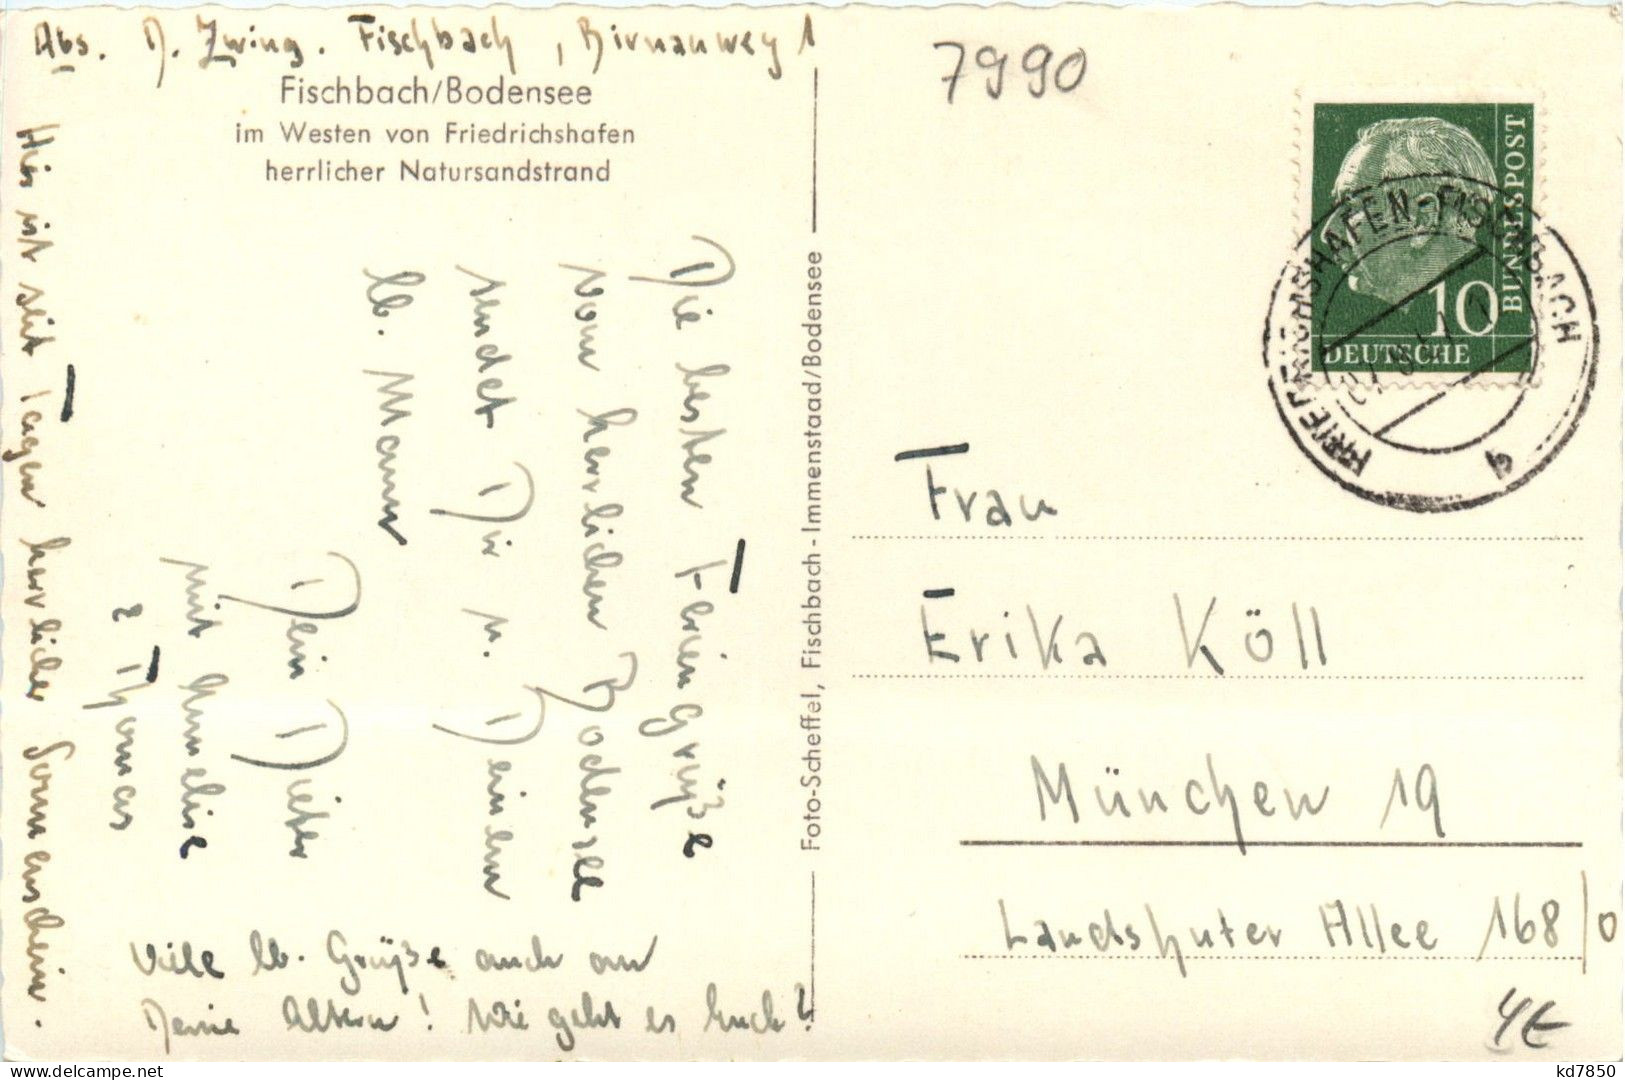 Abs. D. Zwing. Fischbach, Birnauweg 1
Fischbach/Bodensee
im Westen von Friedrichshafen
herrlicher Natursandstrand
Die besten Feriengrüße
vom herrlichen Bodensee
sendet Dir u. Deinem
lb. Mann
Dein Dieter
mit Annelise
u. Thomas
Viele lb. Grüße auch an
Deine Eltern! Wie geht es Euch?
Hier ist seit Tagen herrlicher Sonnenschein.
Foto-Scheffel, Fischbach - Immenstaad/Bodensee
7990
DEUTSCHE
BUNDESPOST
10
FRIEDRICHSHAFEN-FISCHBACH
b
Frau
Erika Köll
München 19
Landshuter Allee 168/0
4€
kd7850